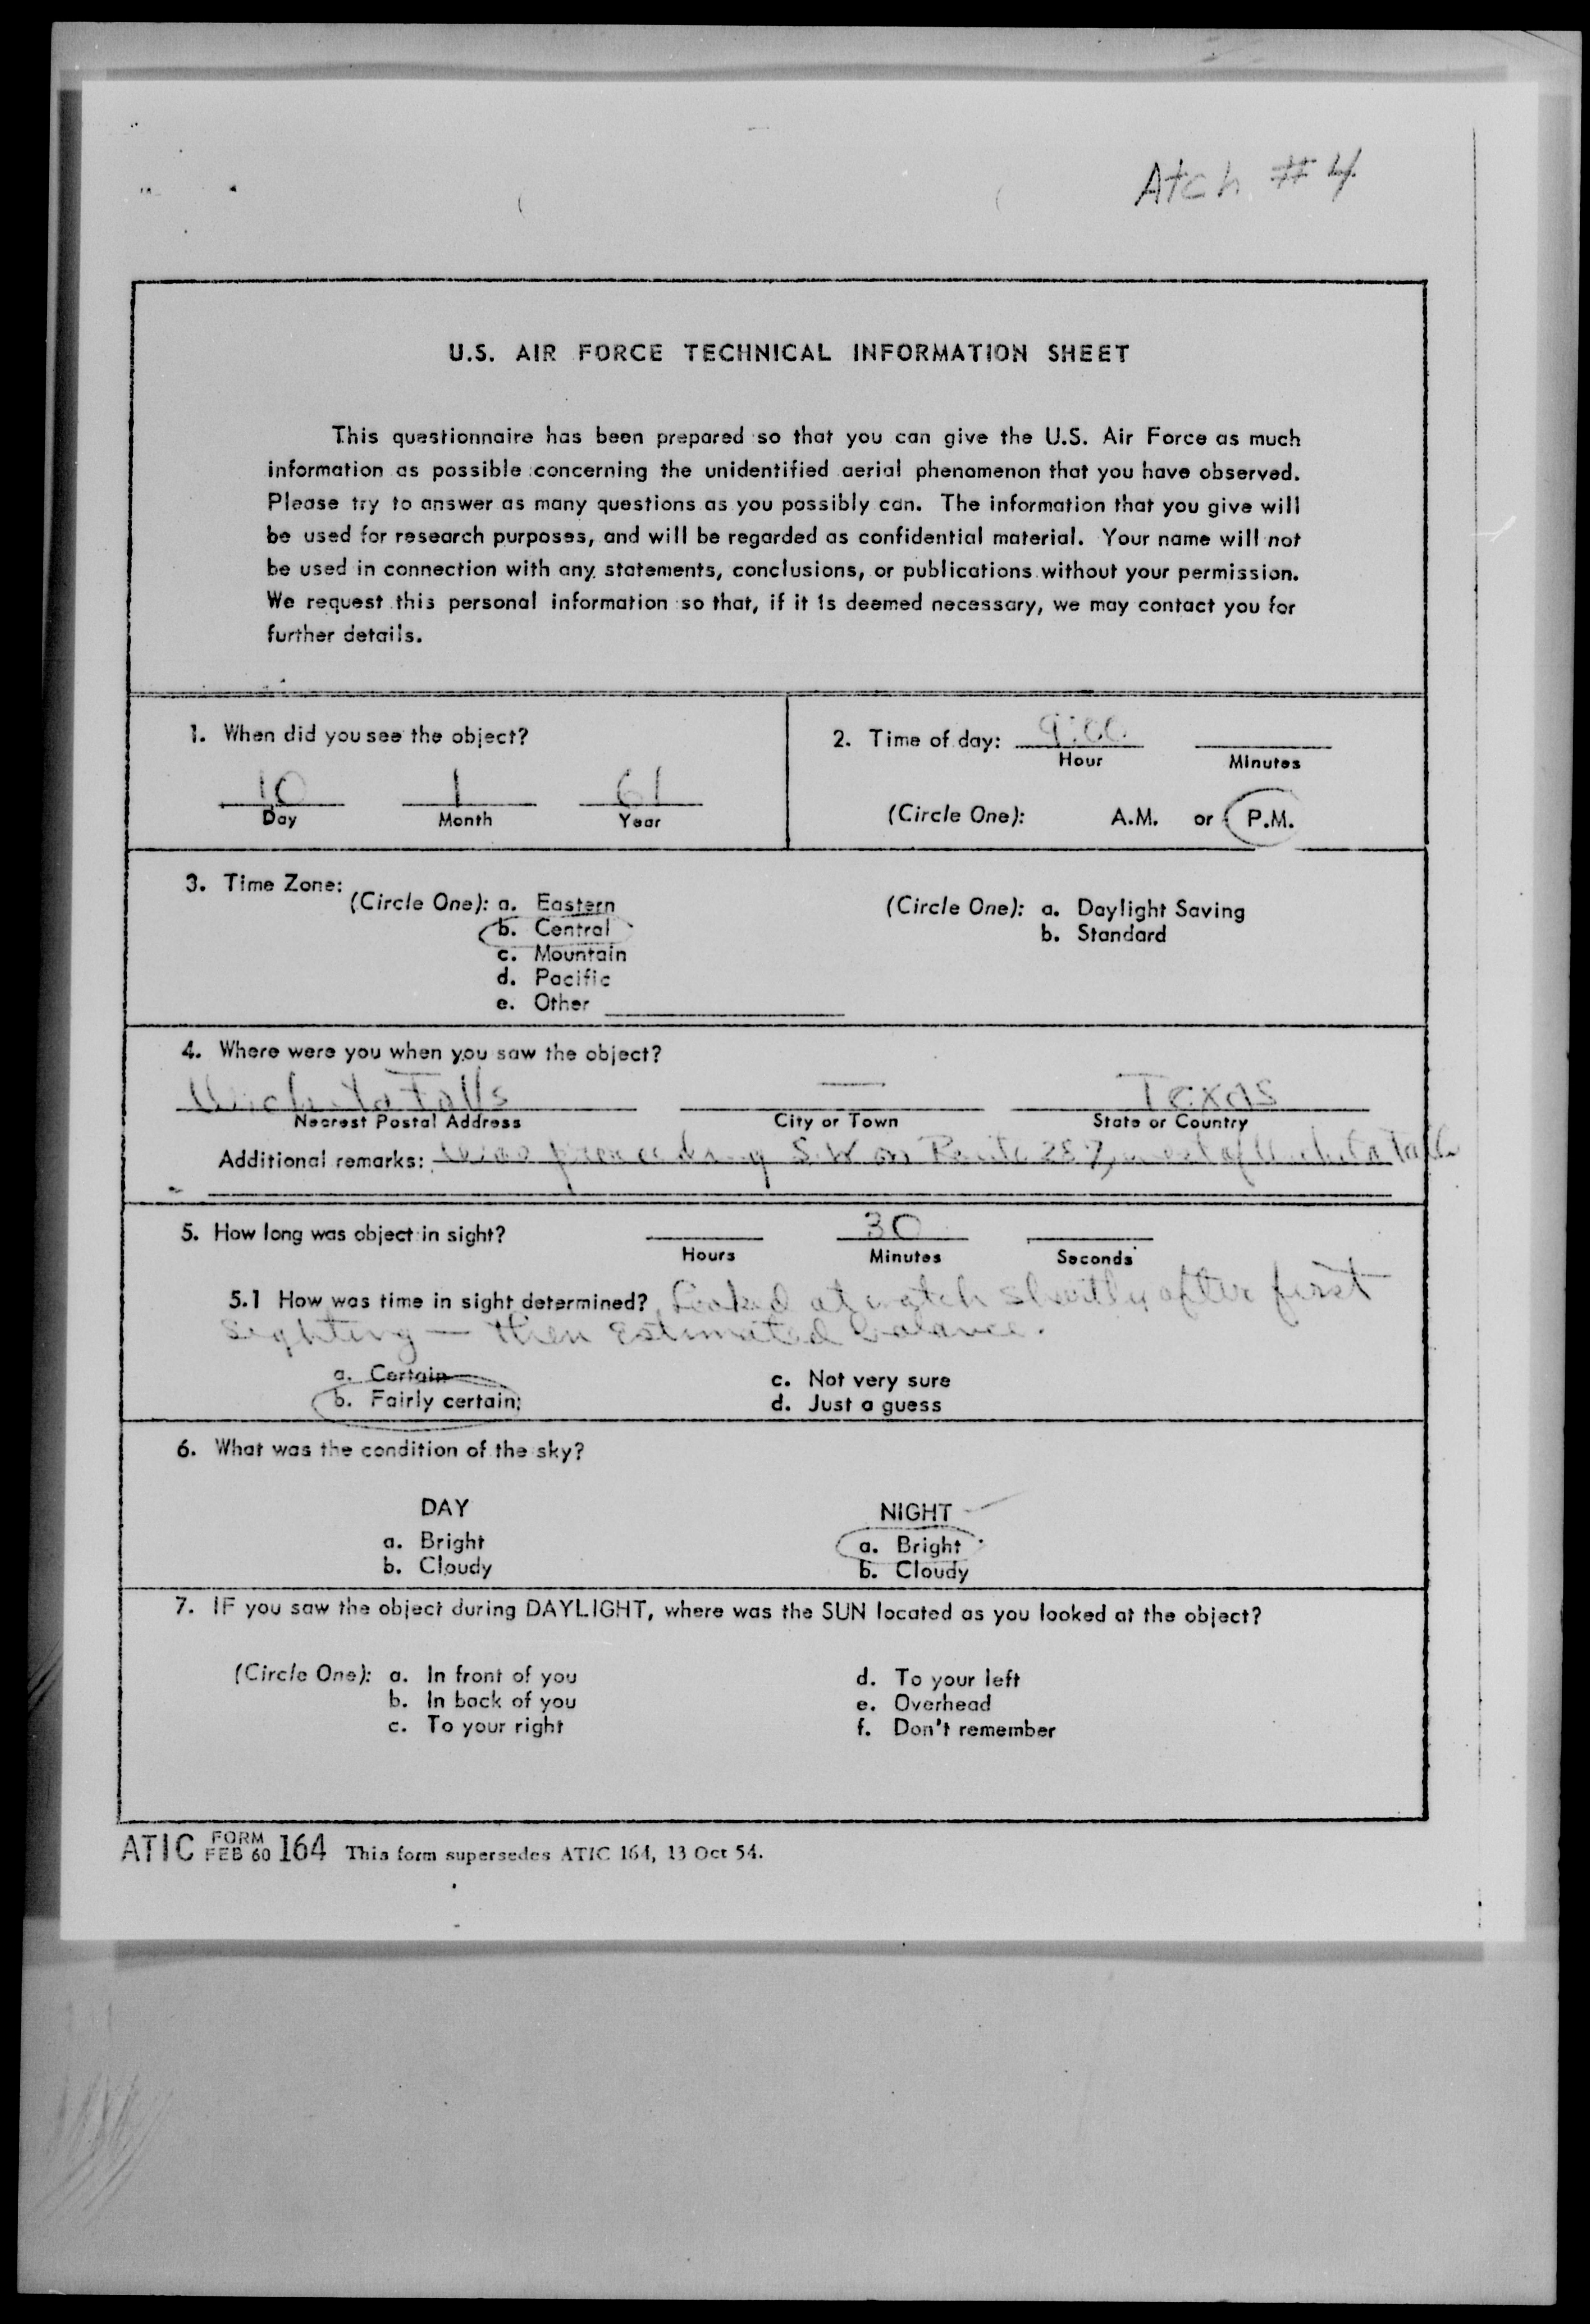 Atch #4
U.S. AIR FORCE TECHNICAL INFORMATION SHEET
This questionnaire has been prepared so that you can give the U.S. Air Force as much
information as possible concerning the unidentified aerial phenomenon that you have observed.
Please try to answer as many questions as you possibly can. The information that you give will
be used for research purposes, and will be regarded as confidential material. Your name will not
be used in connection with any statements, conclusions, or publications without your permission.
We request this personal information so that, if it is deemed necessary, we may contact you for
further details.
1. When did you see the object?
10 1 61
Day Month Year
2. Time of day: 9:00
Hour Minutes
(Circle One): A.M. or P.M.
3. Time Zone:
(Circle One): a. Eastern
b. Central
c. Mountain
d. Pacific
e. Other
(Circle One): a. Daylight Saving
b. Standard
4. Where were you when you saw the object?
Wichita Falls — Texas
Nearest Postal Address City or Town State or Country
Additional remarks: Was proceeding S.W on Route 287, west of Wichita Falls
5. How long was object in sight? 30
Hours Minutes Seconds
5.1 How was time in sight determined? Looked at watch shortly after first
sighting — then estimated balance.
a. Certain
b. Fairly certain
c. Not very sure
d. Just a guess
6. What was the condition of the sky?
DAY
a. Bright
b. Cloudy
NIGHT
a. Bright
b. Cloudy
7. IF you saw the object during DAYLIGHT, where was the SUN located as you looked at the object?
(Circle One): a. In front of you
b. In back of you
c. To your right
d. To your left
e. Overhead
f. Don't remember
ATIC FORM FEB 60 164 This form supersedes ATIC 164, 13 Oct 54.